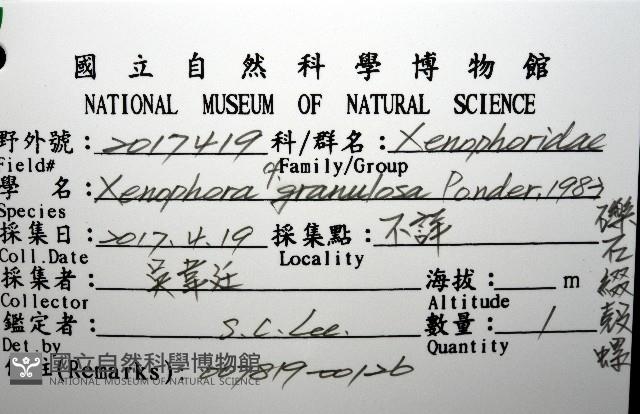 國立自然科學博物館
NATIONAL MUSEUM OF NATURAL SCIENCE
野外號：2017419 科/群名：Xenophoridae
Field# Family/Group
學 名：Xenophora cf granulosa Ponder, 1983
Species
採集日：2017.4.19 採集點：不詳
Coll.Date Locality
採集者：吳韋廷 海拔： m
Collector Altitude
鑑定者： S.C. Lee. 數量： 1
Det.by Quantity
註(Remarks):
礫石綴殼螺
國立自然科學博物館
NATIONAL MUSEUM OF NATURAL SCIENCE